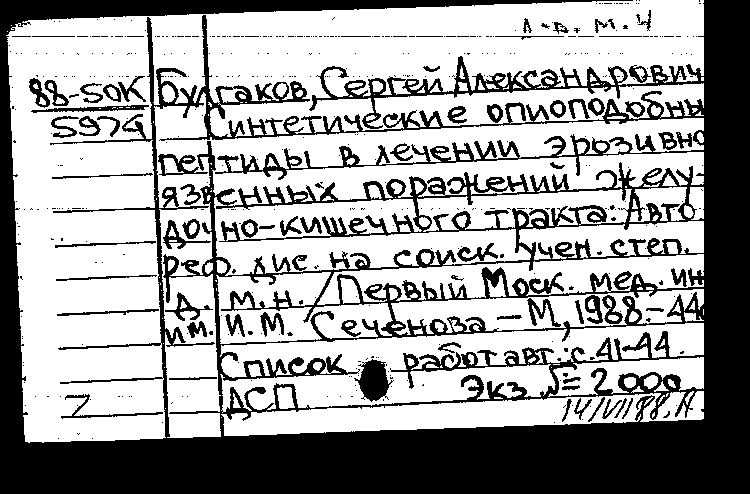 Д-в. м. ч
88-50К Булгаков, Сергей Александрович
597д Синтетические опиоподобны
пептиды в лечении эрозивно
язвенных поражений желу-
дочно-кишечного тракта: Авто
реф. дис. на соиск. учен. степ.
д. м. н. / Первый Моск. мед. ин
им. И. М. Сеченова. – М, 1988. – 44с
Список работ авт.: с. 41-44.
ДСП. Экз №= 2000
14/VII 88. А.